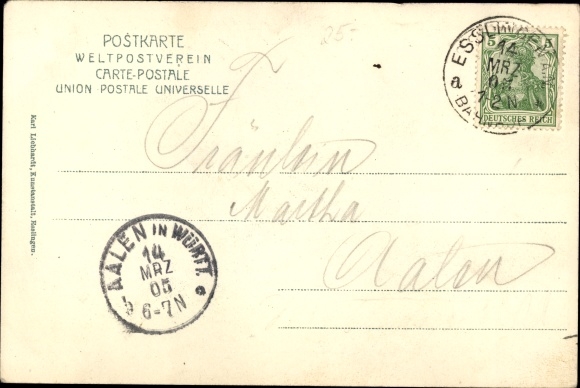 25.-
POSTKARTE
WELTPOSTVEREIN
CARTE-POSTALE
UNION POSTALE UNIVERSELLE
ESSLINGEN
14
MRZ
05
1-2 N
a
DEUTSCHES REICH
5
Karl Lichhardt, Kunstanstalt, Esslingen.
Fräulein
Martha
Aalen
AALEN IN WÜRTT.
14
MRZ
05
6-7N